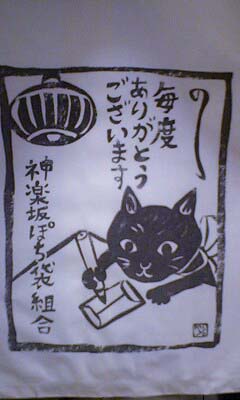 毎度
ありがとう
ございます
神楽坂ぽち袋組合